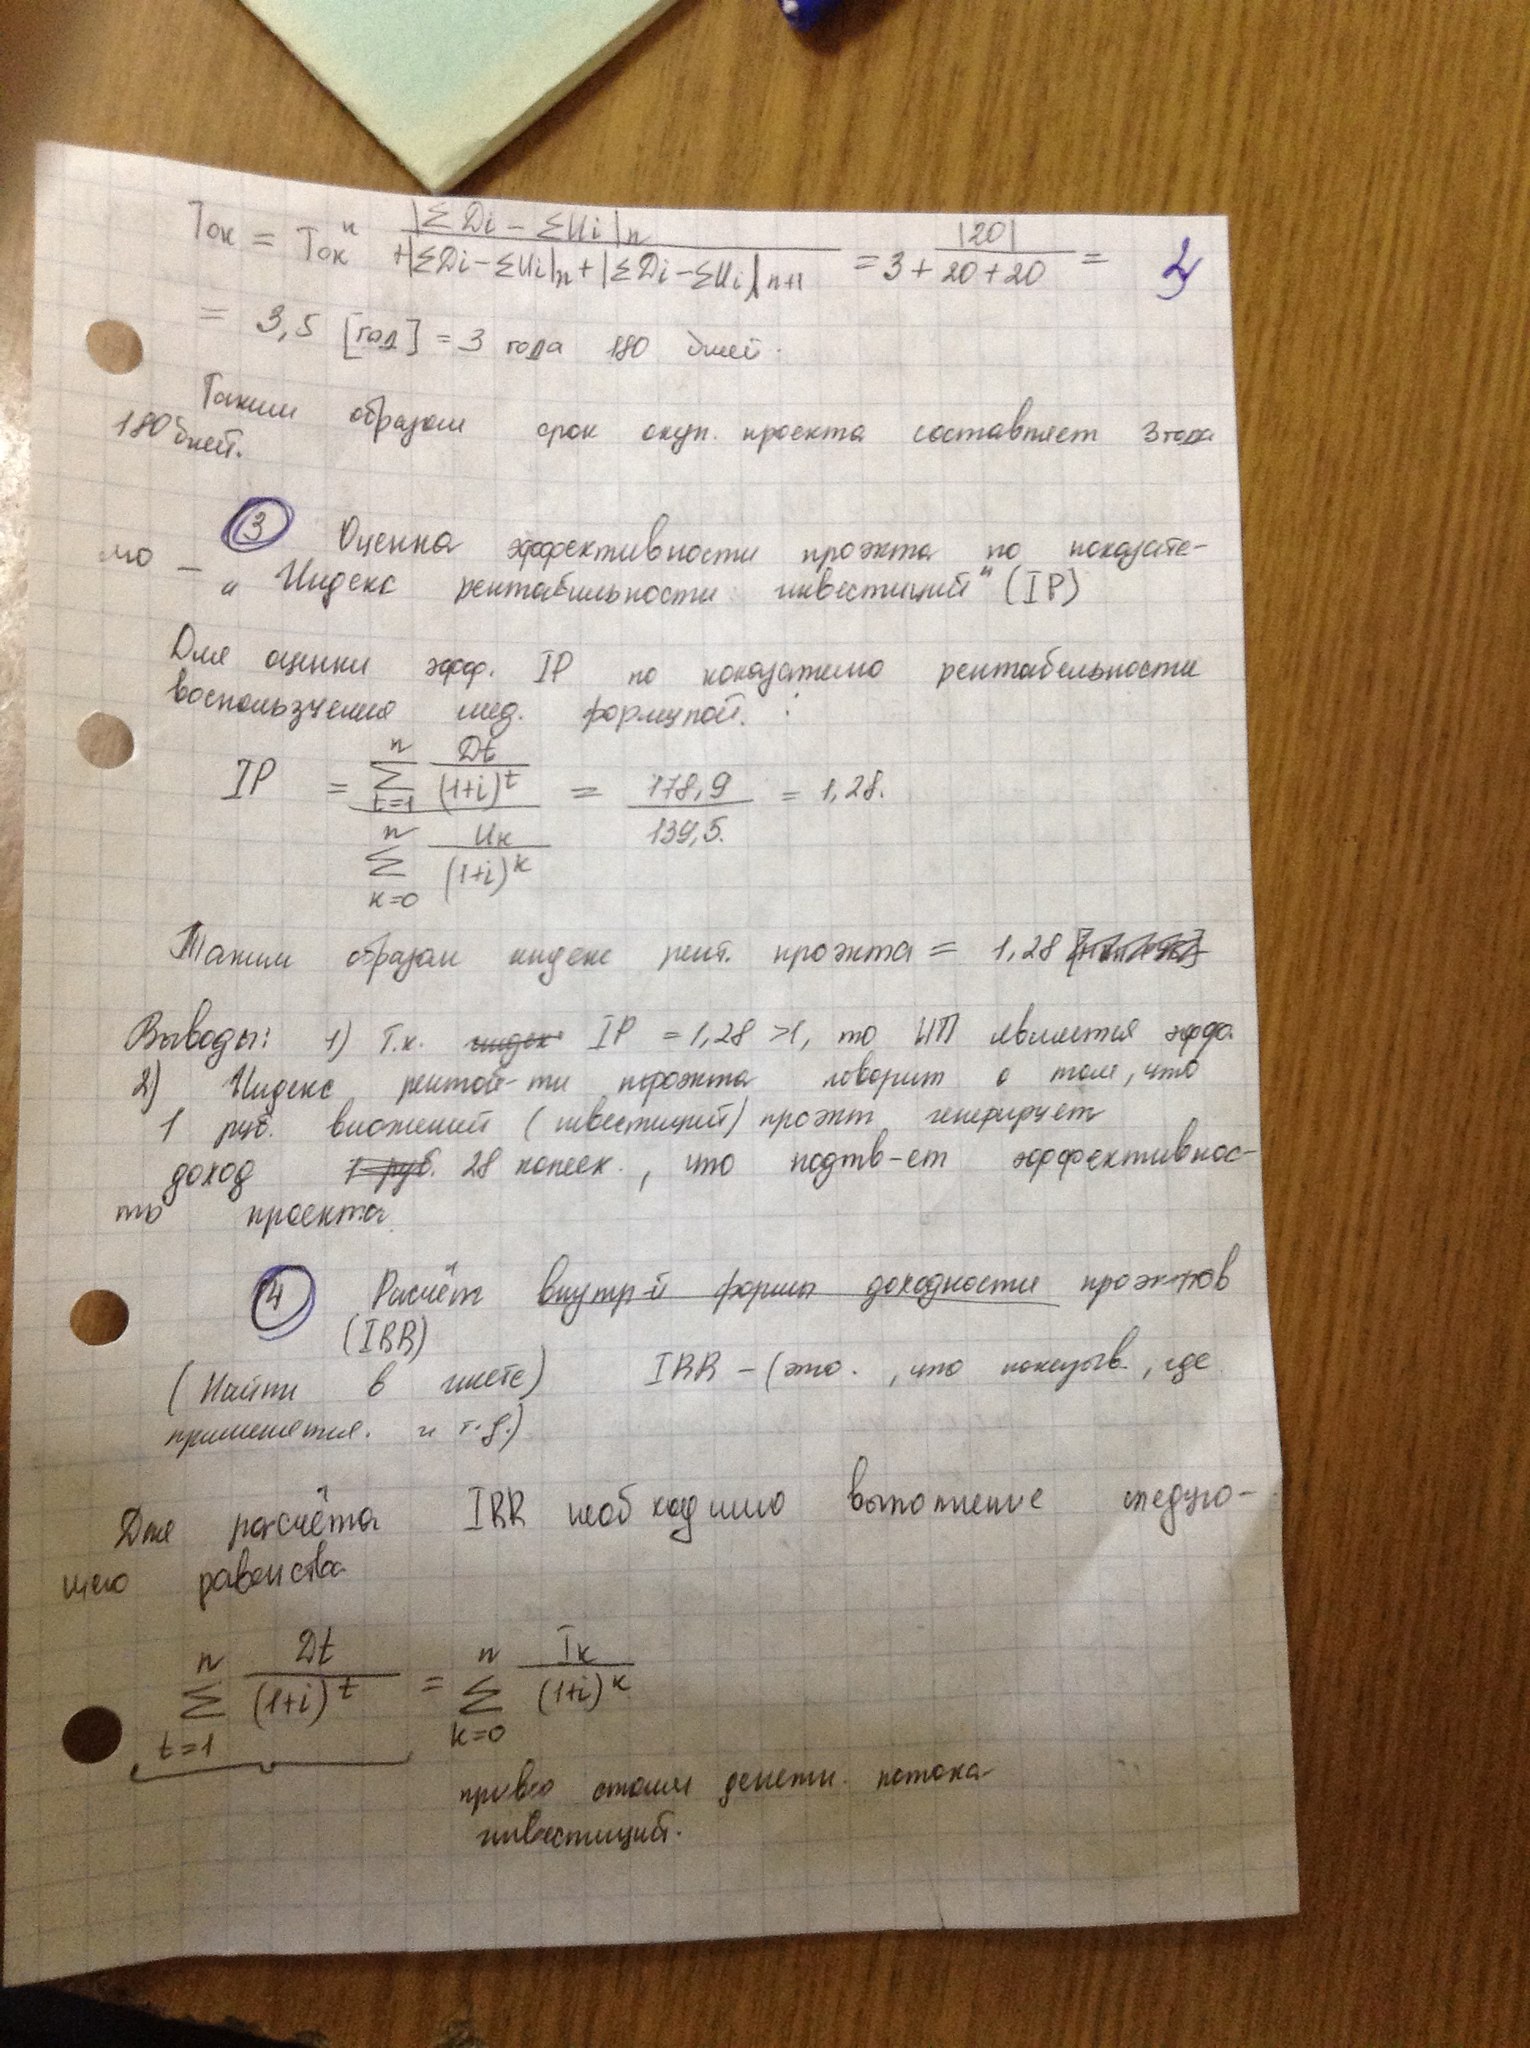 Ток = Ток ⁿ + |ΣДi − ΣИi|n / |ΣДi − ΣИi|n + |ΣДi − ΣИi|n+1 = 3 + |20| / 20 + 20 =
= 3,5 [год] = 3 года 180 дней.
Таким образом срок окуп. проекта составляет 3 года
180 дней.
3 Оценка эффективности проэкта по показате-
лю – "Индекс рентабильности инвестиций" (IP)
Для оценки эфф. IP по показателю рентабельности
воспользуемся след. формулой :
IP = Σ n t=1 Dt / (1+i)^t / Σ n k=0 Ик / (1+i)^k = 178,9 / 139,5. = 1,28.
Таким образом индекс рент. проэкта = 1,28
Выводы: 1) Т.к. индек IP = 1,28 >1, то ИП является эфф.
2) Индекс рентаб-ти проэкта говорит о том, что
1 руб. вложений (инвестиций) проэкт генерирует
доход 1 руб. 28 копеек., что подтв-ет эффективнос-
ть проекта.
4 Расчёт внутр-й формы доходности проэктов
(IRR)
(Найти в инете) IRR – (это. , что показыв., где
применяется. и т.д.)
Для расчёта IRR необходимо выполнение следую-
щего равенства
Σ n t=1 Dt / (1+i)^t = Σ n k=0 Iк / (1+i)^к
потока
инвестиций.